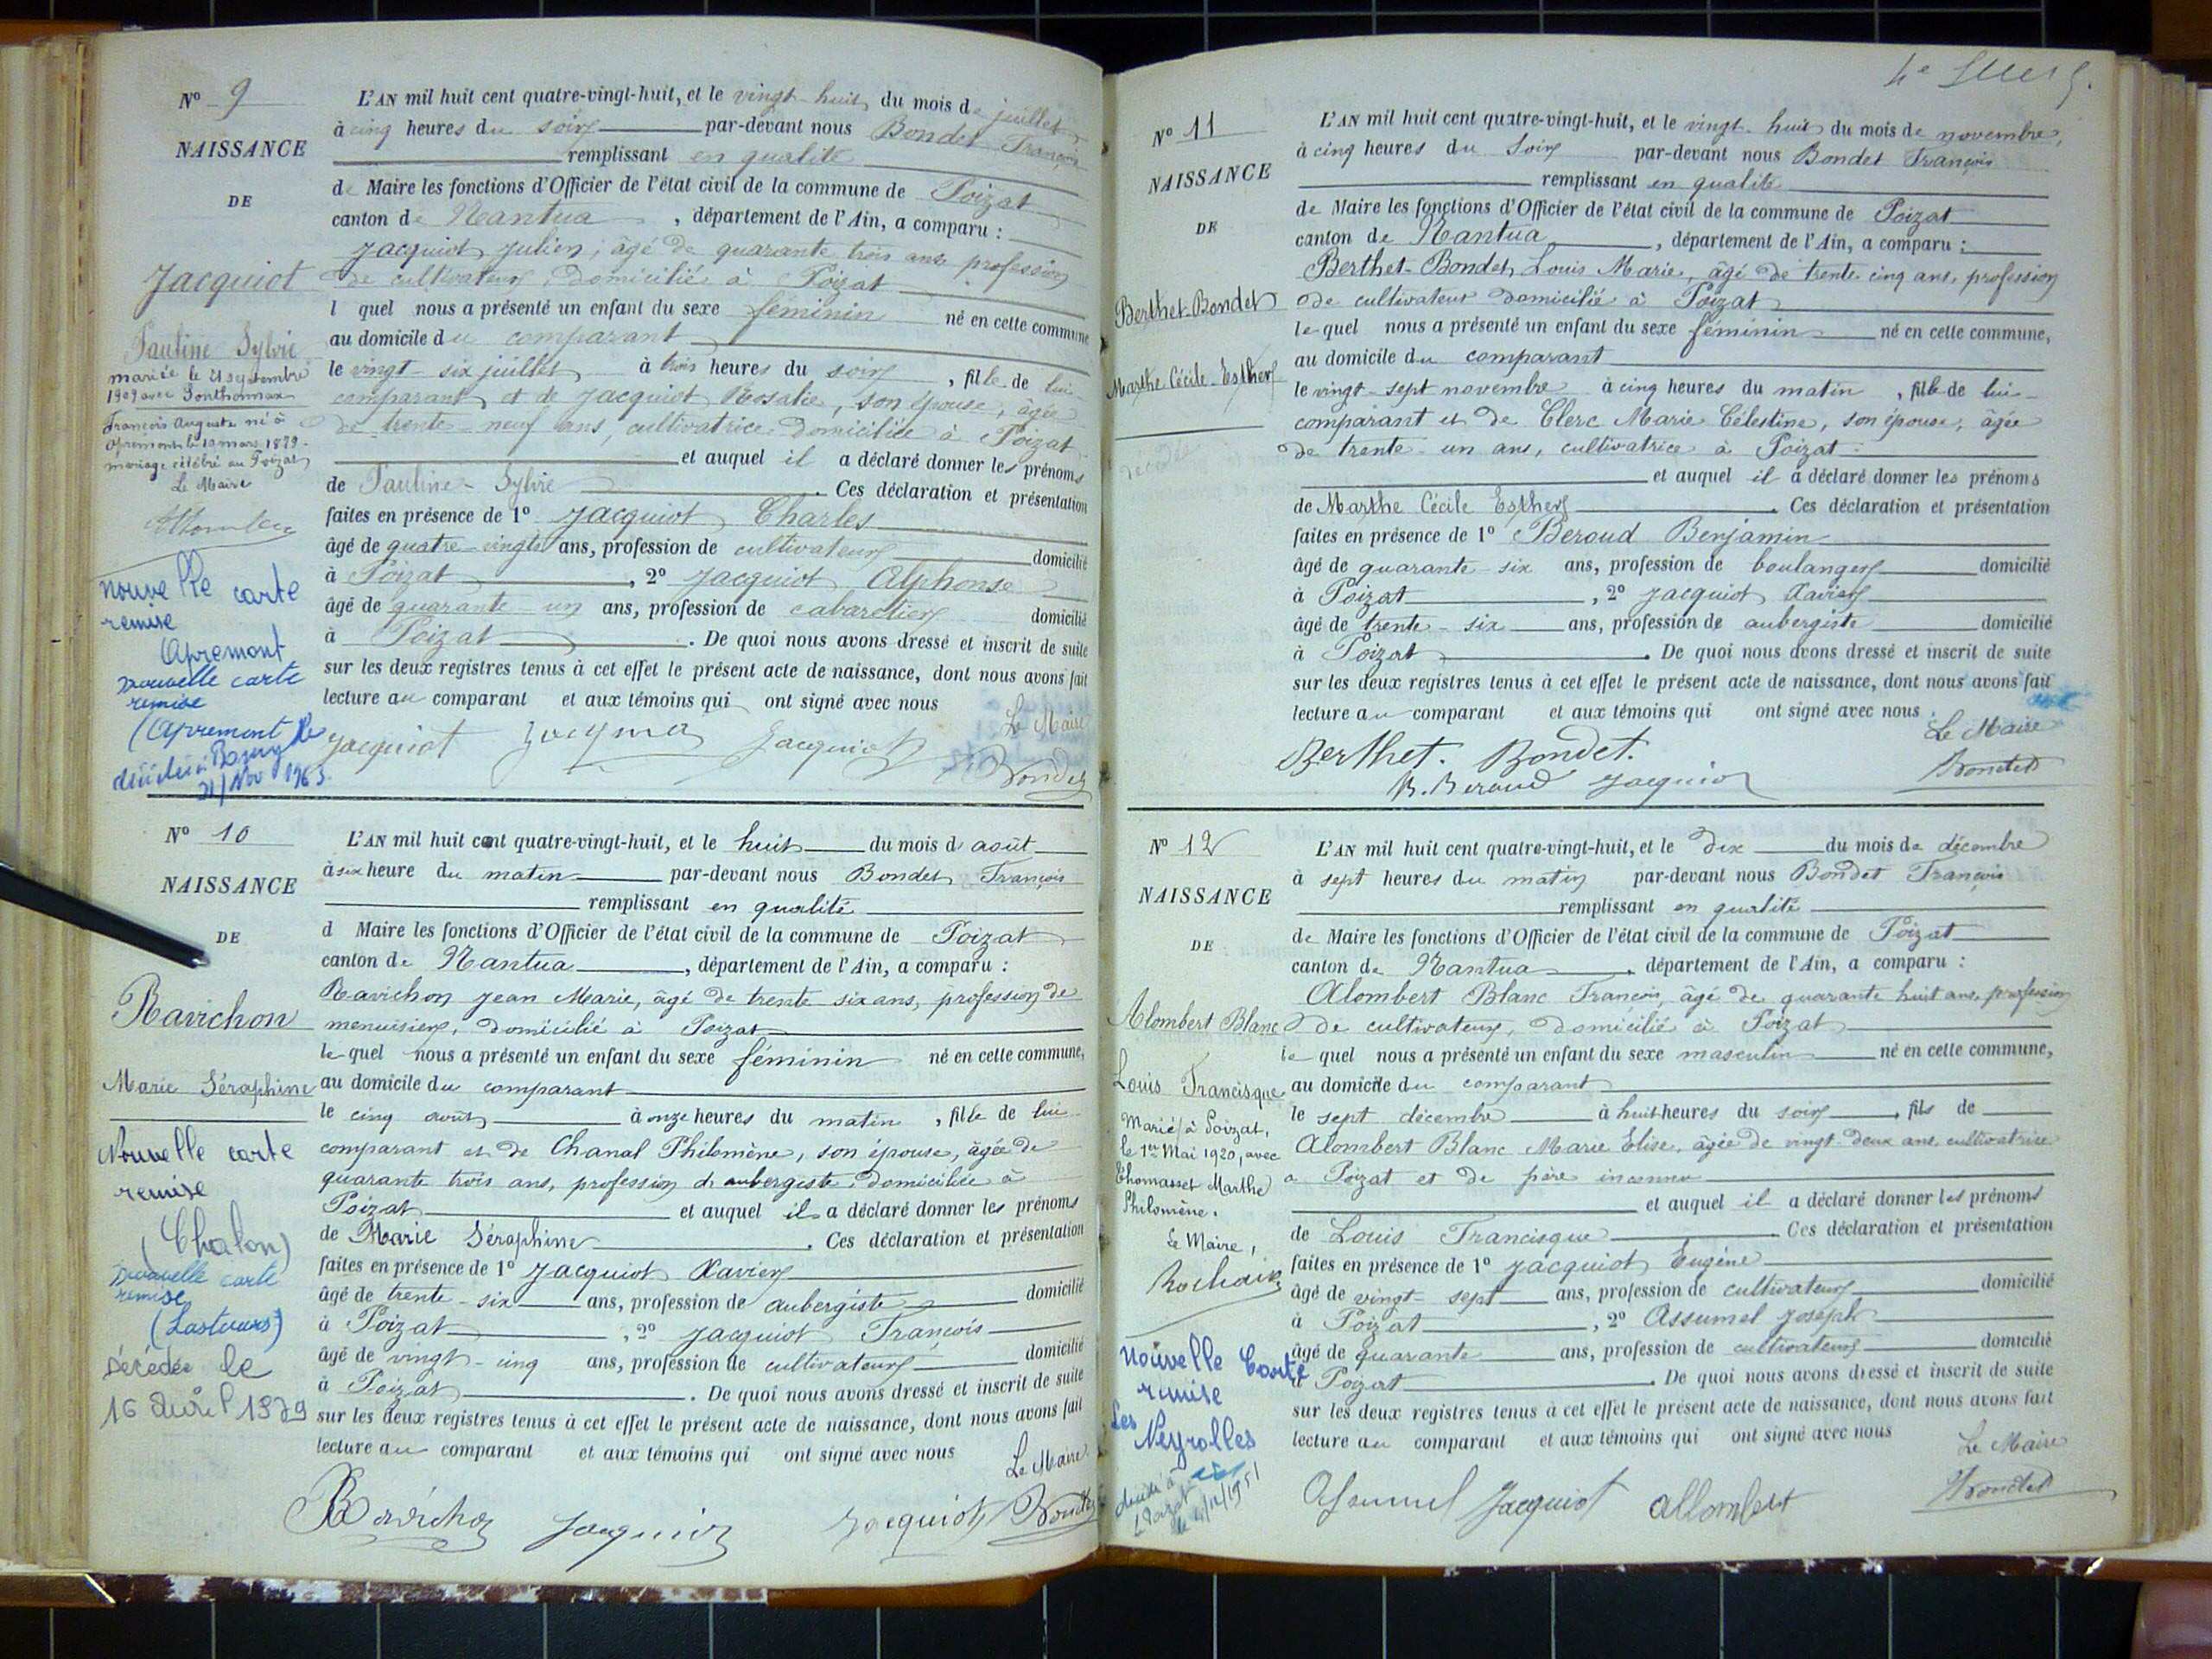 Nº 9
NAISSANCE
DE
Jacquiot
Pauline Sylvie
mariée le 21 septembre
1909 avec Gonthomax
François Auguste né à
Apremont le 10 mars 1879.
mariage célébré au Poizat
Le Maire
nouvelle carte
remise
Apremont
nouvelle carte
remise
(Apremont
décédée à Bourg le
21/Nov 1963.
L'AN mil huit cent quatre-vingt-huit, et le vingt-huit du mois de juillet
à cinq heures du soir par-devant nous Bondet François
remplissant en qualité
de Maire les fonctions d'Officier de l'état civil de la commune de Poizat
canton de Nantua, département de l'Ain, a comparu :
Jacquiot Julien, âgé de quarante trois ans profession
de cultivateur, domicilié à Poizat
l quel nous a présenté un enfant du sexe féminin né en cette commune
au domicile du comparant
le vingt-six juillet à trois heures du soir, fille de lui
comparant et de Jacquiot Rosalie, son épouse, âgée
de trente-neuf ans, cultivatrice domiciliée à Poizat
et auquel il a déclaré donner les prénoms
de Pauline-Sylvie. Ces déclaration et présentation
faites en présence de 1º Jacquiot Charles
âgé de quatre-vingts ans, profession de cultivateur domicilié
à Poizat, 2º Jacquiot Alphonse
âgé de quarante-un ans, profession de cabaretier domicilié
à Poizat. De quoi nous avons dressé et inscrit de suite
sur les deux registres tenus à cet effet le présent acte de naissance, dont nous avons fait
lecture au comparant et aux témoins qui ont signé avec nous
Le Maire
Jacquiot Jacquiot Bondet
Nº 10
NAISSANCE
DE
Ravichon
Marie Séraphine
Nouvelle carte
remise
(Chalon)
nouvelle carte
remise
(Lastours)
Décédée le
16 avril 1979
L'AN mil huit cent quatre-vingt-huit, et le huit du mois d août
à six heure du matin par-devant nous Bondet François
remplissant en qualité
d Maire les fonctions d'Officier de l'état civil de la commune de Poizat
canton de Nantua, département de l'Ain, a comparu :
Ravichon Jean Marie, âgé de trente six ans, profession de
menuisier, domicilié à Poizat
le quel nous a présenté un enfant du sexe féminin né en cette commune,
au domicile du comparant
le cinq août à onze heures du matin, fille de lui
comparant et de Chanal Philomène, son épouse, âgée de
quarante trois ans, profession d aubergiste, domiciliée à
Poizat et auquel il a déclaré donner les prénoms
de Marie Séraphine. Ces déclaration et présentation
faites en présence de 1º Jacquiot Xavier
âgé de trente-six ans, profession de aubergiste domicilié
à Poizat, 2º Jacquiot François
âgé de vingt-cinq ans, profession de cultivateur domicilié
à Poizat. De quoi nous avons dressé et inscrit de suite
sur les deux registres tenus à cet effet le présent acte de naissance, dont nous avons fait
lecture au comparant et aux témoins qui ont signé avec nous
Le Maire
Ravichon Jacquiot Jacquiot Bondet
Nº 11
NAISSANCE
DE
Berthet-Bondet
Marthe Cécile Esther
décédée
L'AN mil huit cent quatre-vingt-huit, et le vingt-huit du mois de novembre,
à cinq heures du soir par-devant nous Bondet François
remplissant en qualité
de Maire les fonctions d'Officier de l'état civil de la commune de Poizat
canton de Nantua, département de l'Ain, a comparu :
Berthet-Bondet Louis Marie, âgé de trente cinq ans, profession
de cultivateur domicilié à Poizat
le quel nous a présenté un enfant du sexe féminin né en cette commune,
au domicile du comparant
le vingt-sept novembre à cinq heures du matin, fille de lui
comparant et de Clerc Marie Célestine, son épouse, âgée
de trente-un ans, cultivatrice à Poizat
et auquel il a déclaré donner les prénoms
de Marthe Cécile Esther. Ces déclaration et présentation
faites en présence de 1º Beroud Benjamin
âgé de quarante-six ans, profession de boulanger domicilié
à Poizat, 2º Jacquiot Xavier
âgé de trente-six ans, profession de aubergiste domicilié
à Poizat. De quoi nous avons dressé et inscrit de suite
sur les deux registres tenus à cet effet le présent acte de naissance, dont nous avons fait
lecture au comparant et aux témoins qui ont signé avec nous.
Le Maire
Berthet. Bondet.
B. Beroud Jacquiot Bondet
Nº 12
NAISSANCE
DE
Alombert Blanc
Louis Francisque
Marié à Poizat,
le 1er Mai 1920, avec
Thomasset Marthe
Philomène.
Le Maire,
Rochaix
nouvelle Carte
remise
Les
Neyrolles
décédé à
L Poizat
le 4/12/1951
L'AN mil huit cent quatre-vingt-huit, et le dix du mois de décembre
à sept heures du matin par-devant nous Bondet François
remplissant en qualité
de Maire les fonctions d'Officier de l'état civil de la commune de Poizat
canton de Nantua, département de l'Ain, a comparu :
Alombert Blanc François, âgé de quarante huit ans, profession
de cultivateur, domicilié à Poizat
le quel nous a présenté un enfant du sexe masculin né en cette commune,
au domicile du comparant
le sept décembre à huit heures du soir, fils de
Alombert Blanc Marie Elise, âgée de vingt-deux ans cultivatrice
a Poizat et de père inconnu
et auquel il a déclaré donner les prénoms
de Louis Francisque. Ces déclaration et présentation
faites en présence de 1º Jacquiot Eugène
âgé de vingt-sept ans, profession de cultivateur domicilié
à Poizat, 2º Assumel Joseph
âgé de quarante ans, profession de cultivateur domicilié
à Poizat. De quoi nous avons dressé et inscrit de suite
sur les deux registres tenus à cet effet le présent acte de naissance, dont nous avons fait
lecture au comparant et aux témoins qui ont signé avec nous
Le Maire
Assumel Jacquiot Allombert Bondet